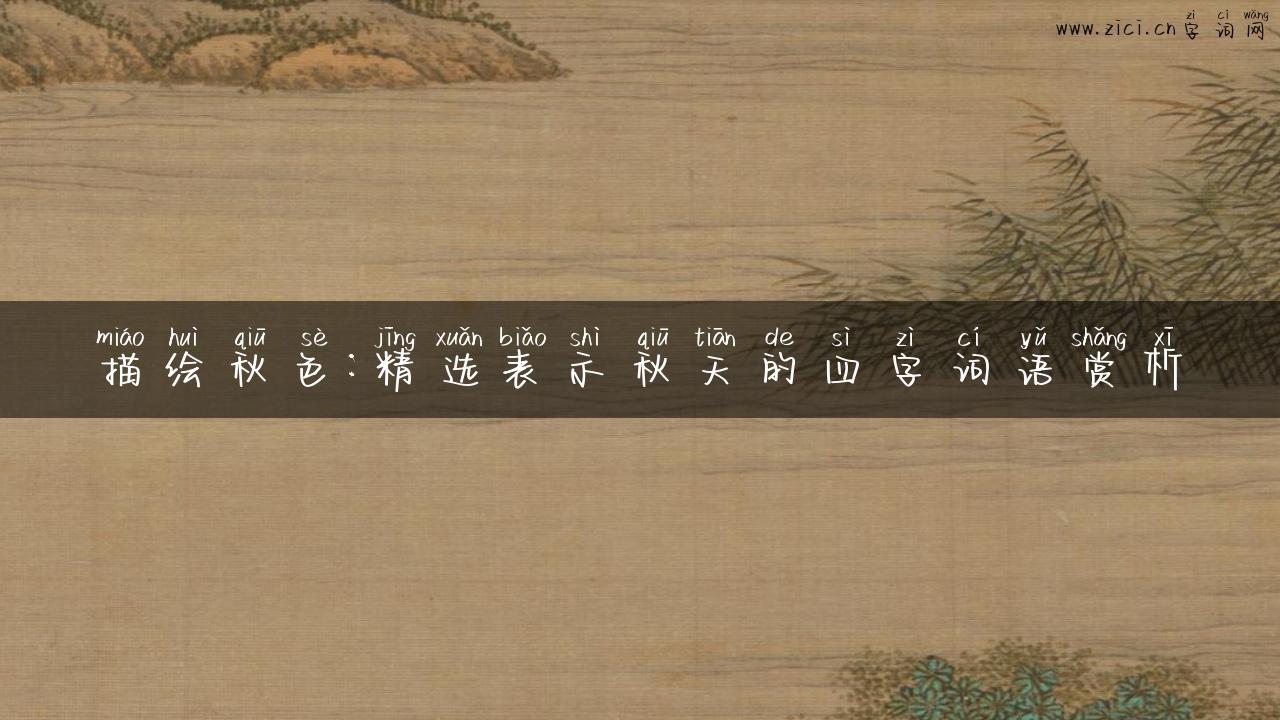 zì cí wǎng
www.zici.cn 字词网
miáo huì qiū sè jīng xuǎn biǎo shì qiū tiān de sì zì cí yǔ shǎng xī
描绘秋色:精选表示秋天的四字词语赏析